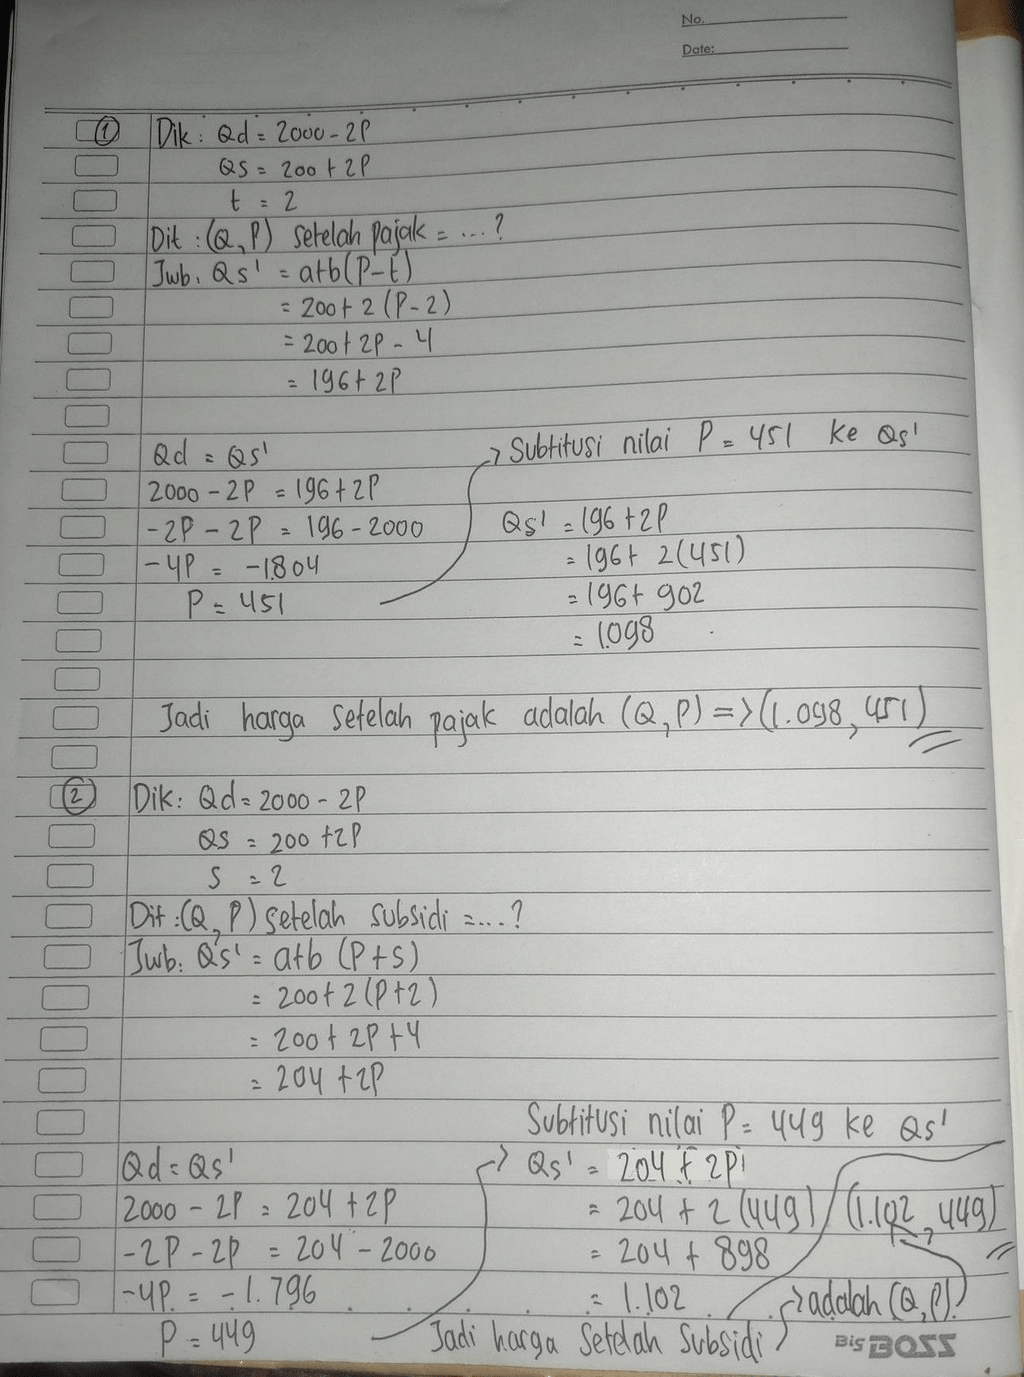 No.
Date:
① Dik: Qd = 2000 - 2P
Qs = 200 + 2P
t = 2
Dit : (Q, P) setelah pajak = ...?
Jwb. Qs' = a+b(P-t)
= 200 + 2 (P-2)
= 200 + 2P - 4
= 196 + 2P
Qd = Qs'
2000 - 2P = 196 + 2P
-2P - 2P = 196 - 2000
-4P = -1804
P = 451
→ Subtitusi nilai P = 451 ke Qs'
Qs' = 196 + 2P
= 196 + 2(451)
= 196 + 902
= 1.098
Jadi harga setelah pajak adalah (Q, P) => (1.098, 451)
② Dik: Qd = 2000 - 2P
Qs = 200 + 2P
S = 2
Dit : (Q, P) setelah subsidi = ...?
Jwb: Qs' = a+b (P+s)
= 200 + 2 (P+2)
= 200 + 2P + 4
= 204 + 2P
Qd = Qs'
2000 - 2P = 204 + 2P
-2P - 2P = 204 - 2000
-4P = -1.796
P = 449
Subtitusi nilai P = 449 ke Qs'
→ Qs' = 204 + 2P
= 204 + 2 (449)
= 204 + 898
= 1.102
Jadi harga setelah subsidi
→ adalah (Q, P)
(1.102, 449)
Big BOSS